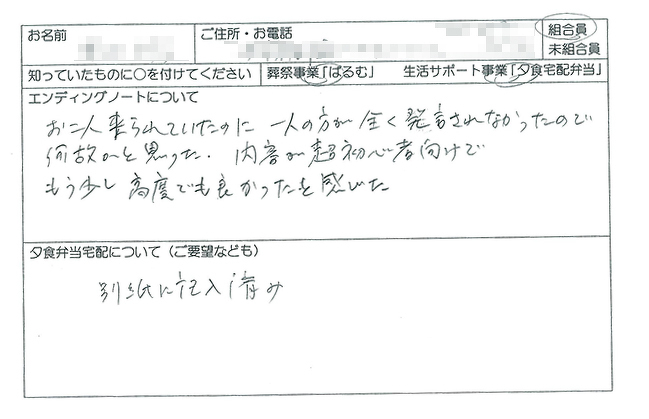 お名前
ご住所・お電話
組合員
未組合員
知っていたものに○を付けてください
葬祭事業「ぱるむ」 生活サポート事業「夕食宅配弁当」
エンディングノートについて
お二人来られていたのに 一人の方が全く発言されなかったので
何故かと思った. 内容が超初心者向けで
もう少し高度でも良かったと感じた
夕食弁当宅配について(ご要望なども)
別紙に記入済み